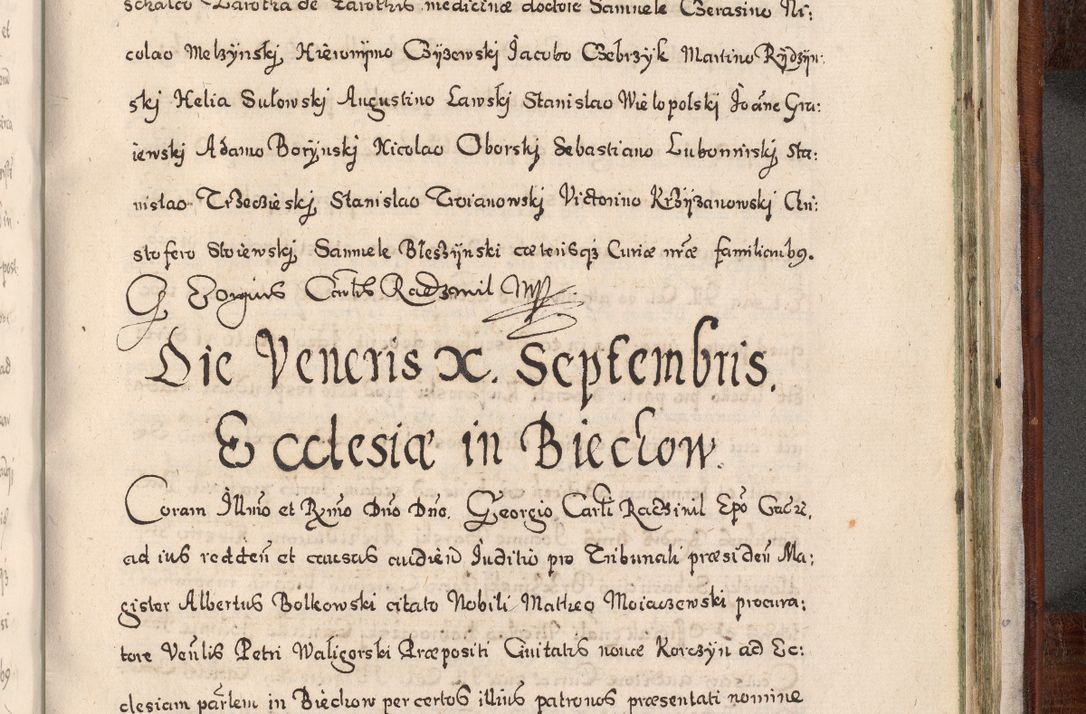 schalco Zarotha de Zarothis medicinæ doctore Samuele Gerasino Ni:
colao Melzÿnskj, Hieronÿmo Czÿzewski Jacobo Czebrzÿk Martino Rÿdzÿn:
skj Helia Sulowskj Augustino Lawskj Stanislao Wielopolskj Joāne Gra:
iewskj Adamo Borÿnskj Nicolao Oborskj Sebastiano Lubomirskj Sta:
nislao Trzecieskj, Stanislao Troianowskj Victorino Krzÿzanowskj Chri:
stofero Stoiewskj, Samuele Bleszÿnski cæterisqȝ Curiæ nr̄æ familiaribꝰ.
Georgius Carlis Radzwil Mp
Die Veneris X. Septembris.
Ecclesiæ in Biechow.
Coram Illmō et Rmō Dnō Dnō. Georgio Carli Radziuil Epō Cracᵉ,
ad ius reddeñ et causas audieñ Juditiū pro Tribunali præsideñ Ma:
gister Albertus Bolkowski citato Nobili Matheo Moiaczewski procura:
tore Veñlis Petri Waligorski Præpositi Ciuitatis nouæ Korczÿn ad Ec:
clesiam parlem in Biechow per certos illius patronos præsentati nomine